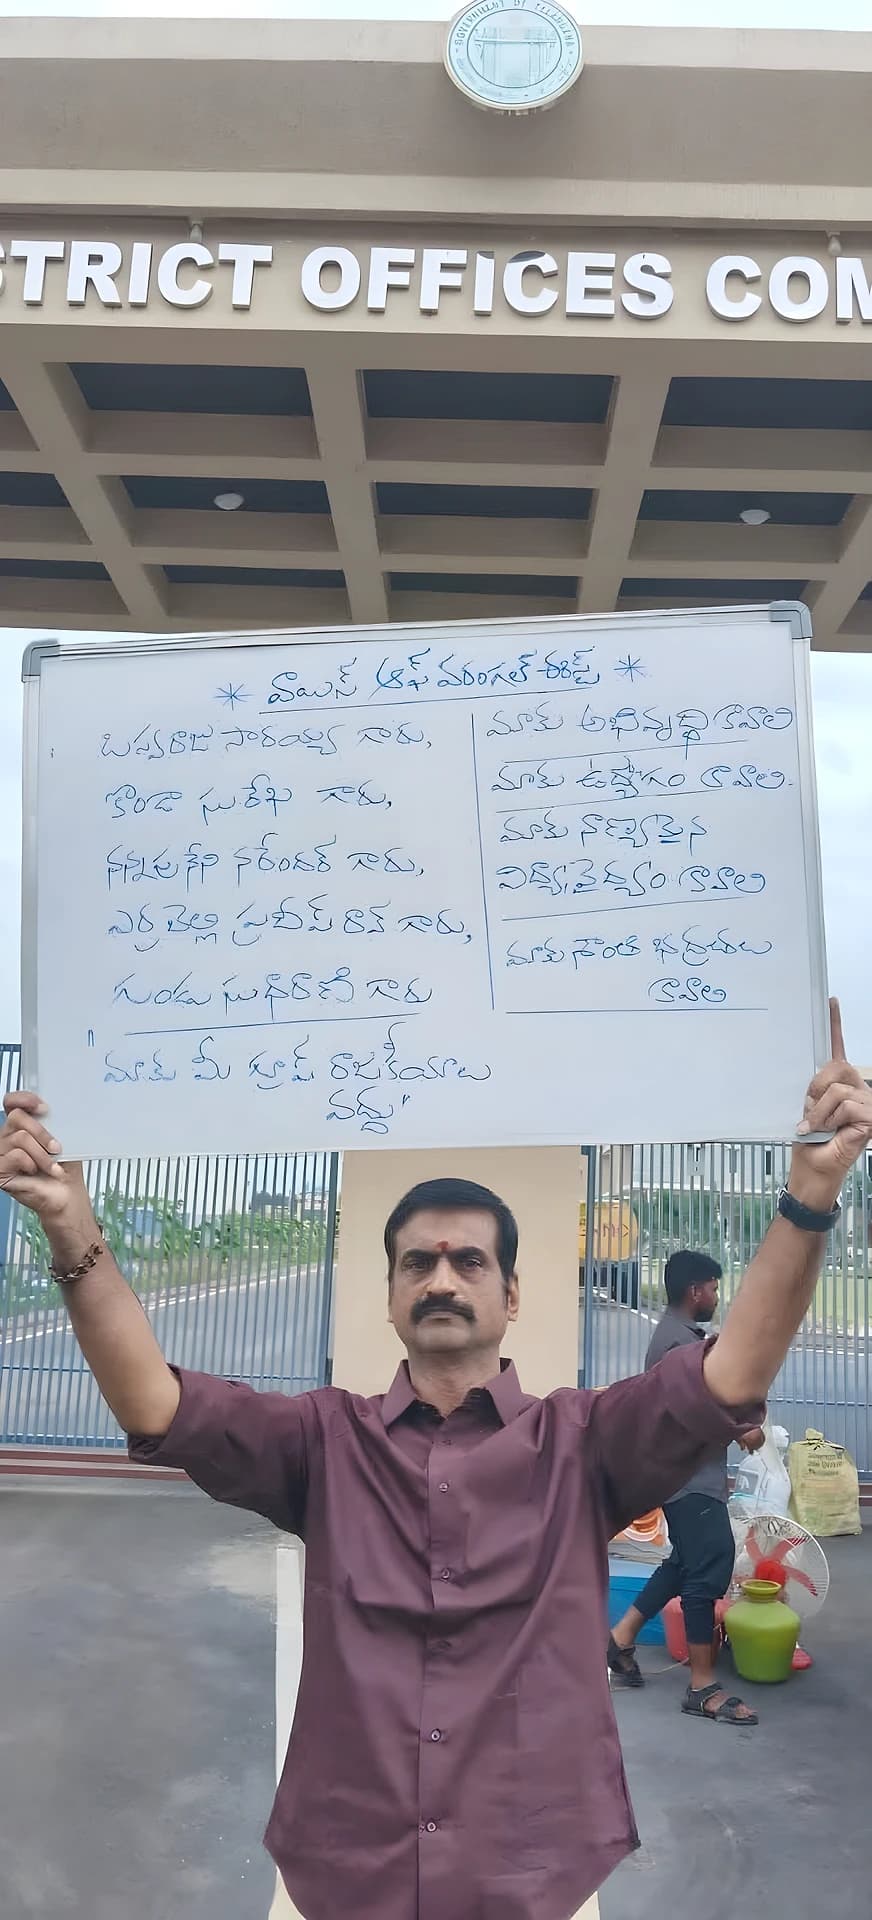 GOVERNMENT OF TELANGANA
STRICT OFFICES COM
* వాయిస్ ఆఫ్ వరంగల్ ఈస్ట్ *
బస్వరాజు సారయ్య గారు,
కొండా సురేఖ గారు,
నన్నపునేని నరేందర్ గారు,
ఎర్రబెల్లి ప్రదీప్ రావ్ గారు,
గుండు సుధారాణి గారు
"మాకు మీ గ్రూప్ రాజకీయాలు
వద్దు"
మాకు అభివృద్ధి కావాలి
మాకు ఉద్యోగం కావాలి.
మాకు నాణ్యమైన
విద్యా, వైద్యం కావాలి
మాకు శాంతి భద్రతలు
కావాలి